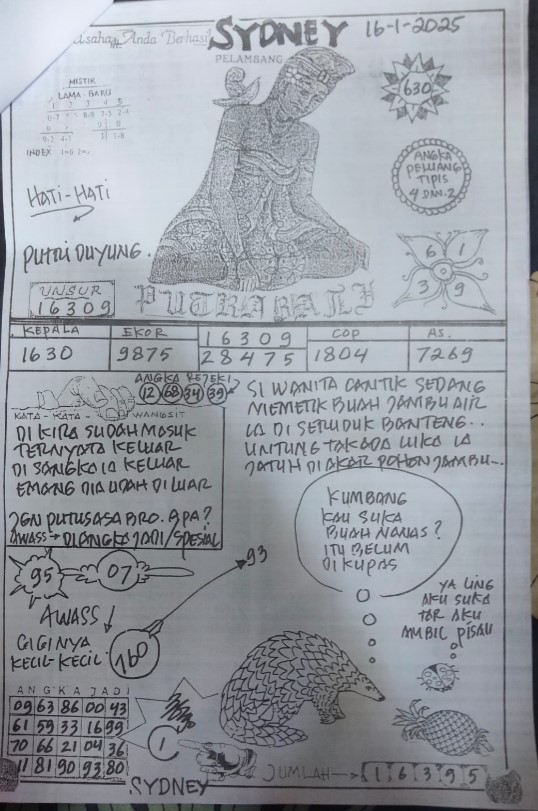 Usaha Anda Berhasil SYDNEY 16-1-2025
PELAMBANG
630
MISTIK
LAMA - BARU
INDEX
HATI-HATI
ANGKA
PELUANG
TIPIS
4 DAN 2
PUTRI DUYUNG.
6 1
3 9
UNSUR
16309
PUTRA RAJA
KEPALA EKOR 16309 COP AS.
1630 9875 28475 1804 7269
ANGKA REJEKI
12 68 34 39
KATA-KATA- WANGSIT
DI KIRA SUDAH MASUK
TERNYATA KELUAR
DI SANGKA IA KELUAR
EMANG DIA UDAH DI LUAR
JGN PUTUSASA BRO. APA?
AWASS → DIANGKA JADI/SPESIAL
SI WANITA CANTIK SEDANG
MEMETIK BUAH JAMBU AIR
IA DI SERUDUK BANTENG..
UNTUNG TAK ADA LUKA IA
JATUH DI AKAR POHON JAMBU..
KUMBANG
KAU SUKA
BUAH NANAS?
ITU BELUM
DI KUPAS
YA LING
AKU SUKA
TAR AKU
AMBIL PISAU
95 07
93
AWASS
GIGINYA
KECIL-KECIL
160
ANGKA JADI
09 63 86 00 43
61 59 33 16 99
70 66 21 04 36
11 81 90 93 80
1
SYDNEY
JUMLAH → 16395